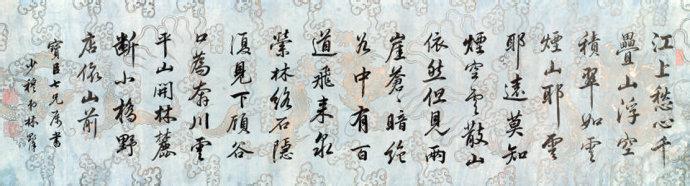 江上愁心千
疊山浮空
積翠如雲
煙山耶雲
耶遠莫知
煙空雲散山
依然但見兩
崖蒼〻暗絕
谷中有百
道飛來泉
縈林絡石隱
復見下谷
口為奔川雲
平山開林麓
斷小橋野
店依山前
寶臣七兄屬書
少穆弟林